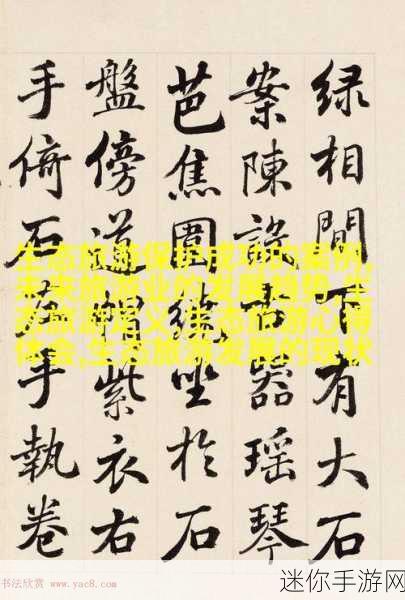 绿相間下有大石
案陳設古器瑶琴
芭焦圍繞坐於石
盤傍道帽紫衣右
手倚石左手執卷
生态旅游保护成功的案例,
未来旅游业的发展趋势,生
态旅游定义,生态旅游心得
体会,生态旅游发展的现状
书法欣赏 www.yac8.com
迷你手游网